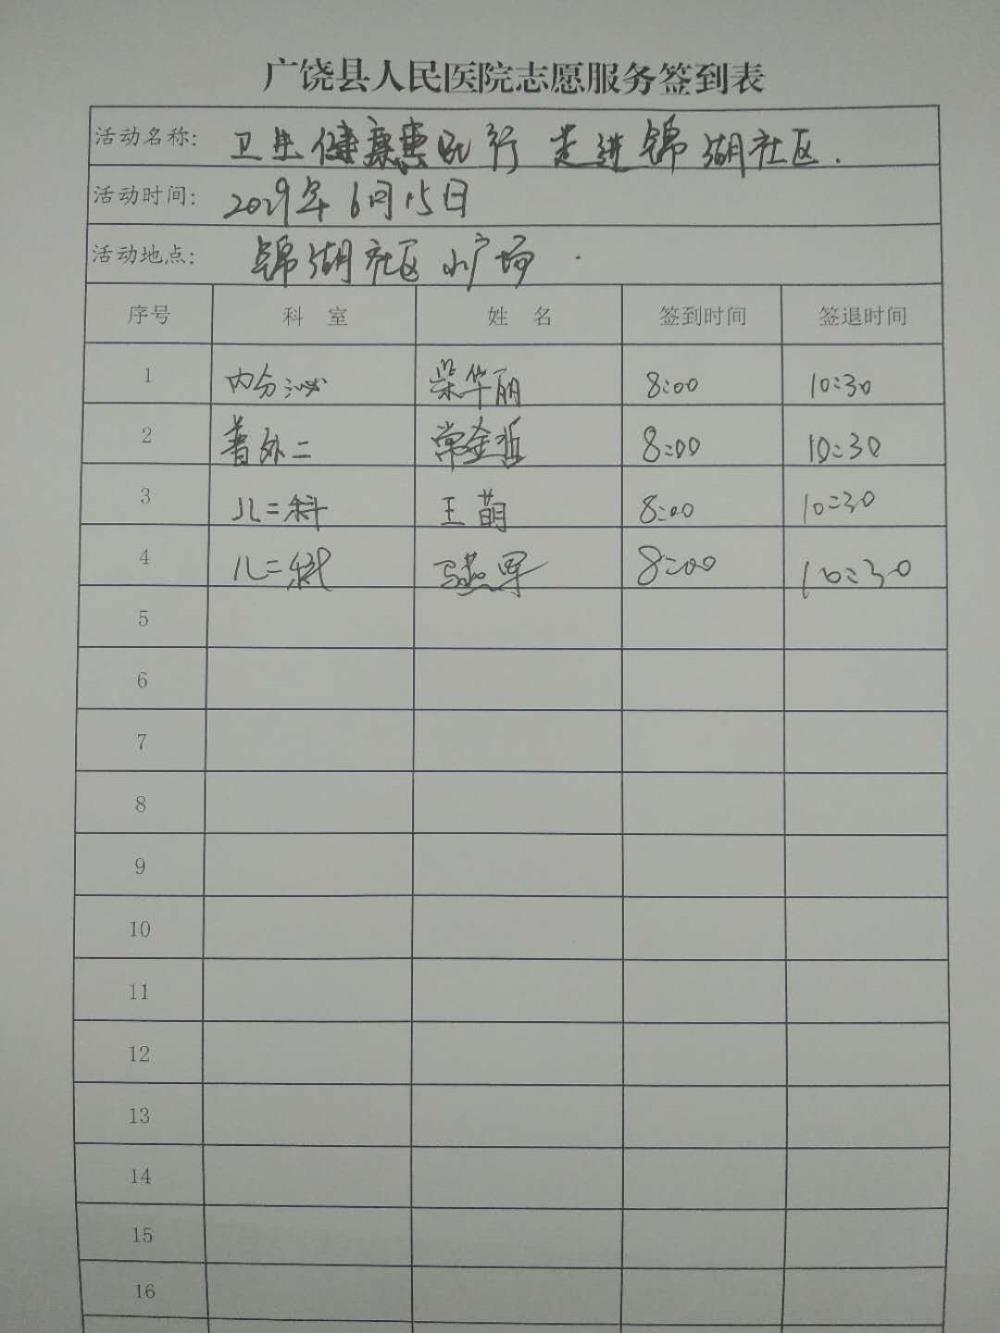 广饶县人民医院志愿服务签到表
活动名称: 卫生健康惠民行 走进锦湖社区.
活动时间: 2029年6月15日
活动地点: 锦湖社区小广场
序号 科 室 姓 名 签到时间 签退时间
1 内分泌 梁华丽 8:00 10:30
2 普外二 常金哲 8:00 10:30
3 儿二科 王萌 8:00 10:30
4 儿二科 马燕军 8:00 10:30
5
6
7
8
9
10
11
12
13
14
15
16